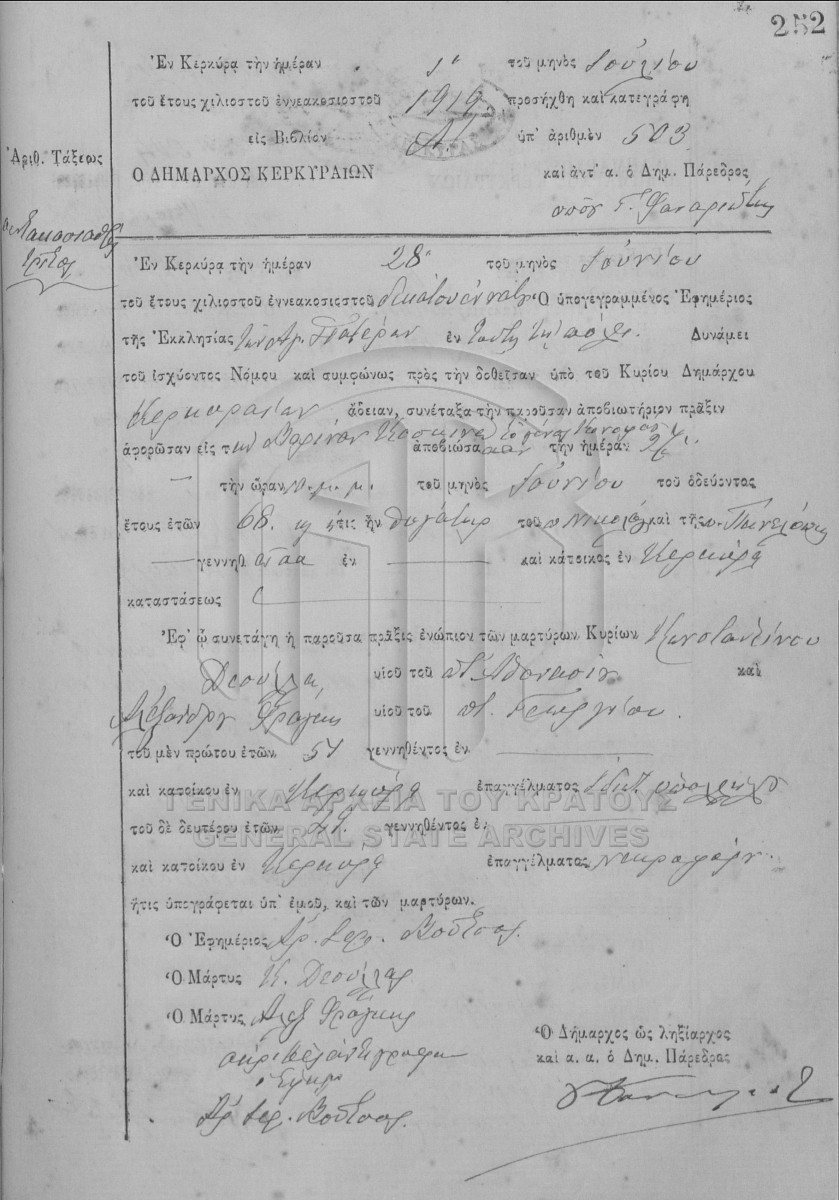 252
Ἐν Κερκύρᾳ τὴν ἡμέραν 1η τοῦ μηνὸς Ἰουλίου
τοῦ ἔτους χιλιοστοῦ ἐννεακοσιοστοῦ 1919 προσήχθη καὶ κατεγράφη
εἰς Βιβλίον Α. ὑπ' ἀριθμὸν 503
Ἀριθ. Τάξεως
Ο ΔΗΜΑΡΧΟΣ ΚΕΡΚΥΡΑΙΩΝ καὶ ἀντ' α. ὁ Δημ. Πάρεδρος
τρεῖς
Ἐν Κερκύρᾳ τὴν ἡμέραν 28η τοῦ μηνὸς Ἰουνίου
τοῦ ἔτους χιλιοστοῦ ἐννεακοσιοστοῦ δεκάτου ἐννάτου Ὁ ὑπογεγραμμένος Ἐφημέριος
τῆς Ἐκκλησίας τῶν Ἁγ. Πατέρων ἐν ταύτῃ τῇ πόλει. Δυνάμει
τοῦ ἰσχύοντος Νόμου καὶ συμφώνως πρὸς τὴν δοθεῖσαν ὑπὸ τοῦ Κυρίου Δημάρχου
Κερκυραίων ἄδειαν, συνέταξα τὴν παροῦσαν ἀποβιωτήριον πρᾶξιν
ἀφορῶσαν εἰς τὴν ἀποβιώσασαν τὴν ἡμέραν 27
τὴν ὥραν τοῦ μηνὸς Ἰουνίου τοῦ ὁδεύοντος
ἔτους ἐτῶν 68. ἥτις ἦν θυγάτηρ τοῦ Νικολάου καὶ τῆς Πηνελόπης
γεννηθ ἐν καὶ κάτοικος ἐν Κερκύρᾳ
καταστάσεως
Ἐφ' ᾧ συνετάγη ἡ παροῦσα πρᾶξις ἐνώπιον τῶν μαρτύρων Κυρίων Κωνσταντίνου
Δεσύλλα υἱοῦ τοῦ π. Ἀθανασίου καὶ
Ἀλεξάνδρου Φράγκη υἱοῦ τοῦ π. Γεωργίου.
τοῦ μὲν πρώτου ἐτῶν 51 γεννηθέντος ἐν
καὶ κατοίκου ἐν Κερκύρᾳ ἐπαγγέλματος ἰδιωτ. ὑπαλλήλου
ΓΕΝΙΚΑ ΑΡΧΕΙΑ ΤΟΥ ΚΡΑΤΟΥΣ
τοῦ δὲ δευτέρου ἐτῶν γεννηθέντος ἐν
GENERAL STATE ARCHIVES
καὶ κατοίκου ἐν Κερκύρᾳ ἐπαγγέλματος νεκροφόρου
ἥτις ὑπογράφεται ὑπ' ἐμοῦ, καὶ τῶν μαρτύρων.
Ὁ Ἐφημέριος Ἀρ. Ἱερ. Βούτσας
Ὁ Μάρτυς Κ. Δεσύλλας
Ὁ Μάρτυς Ἀλεξ Φράγκης
Ὁ Δήμαρχος ὡς ληξίαρχος
ἀκριβὲς ἀντίγραφον
καὶ α. α. ὁ Δημ. Πάρεδρος
Ἀρ. Ἱερ. Βούτσας